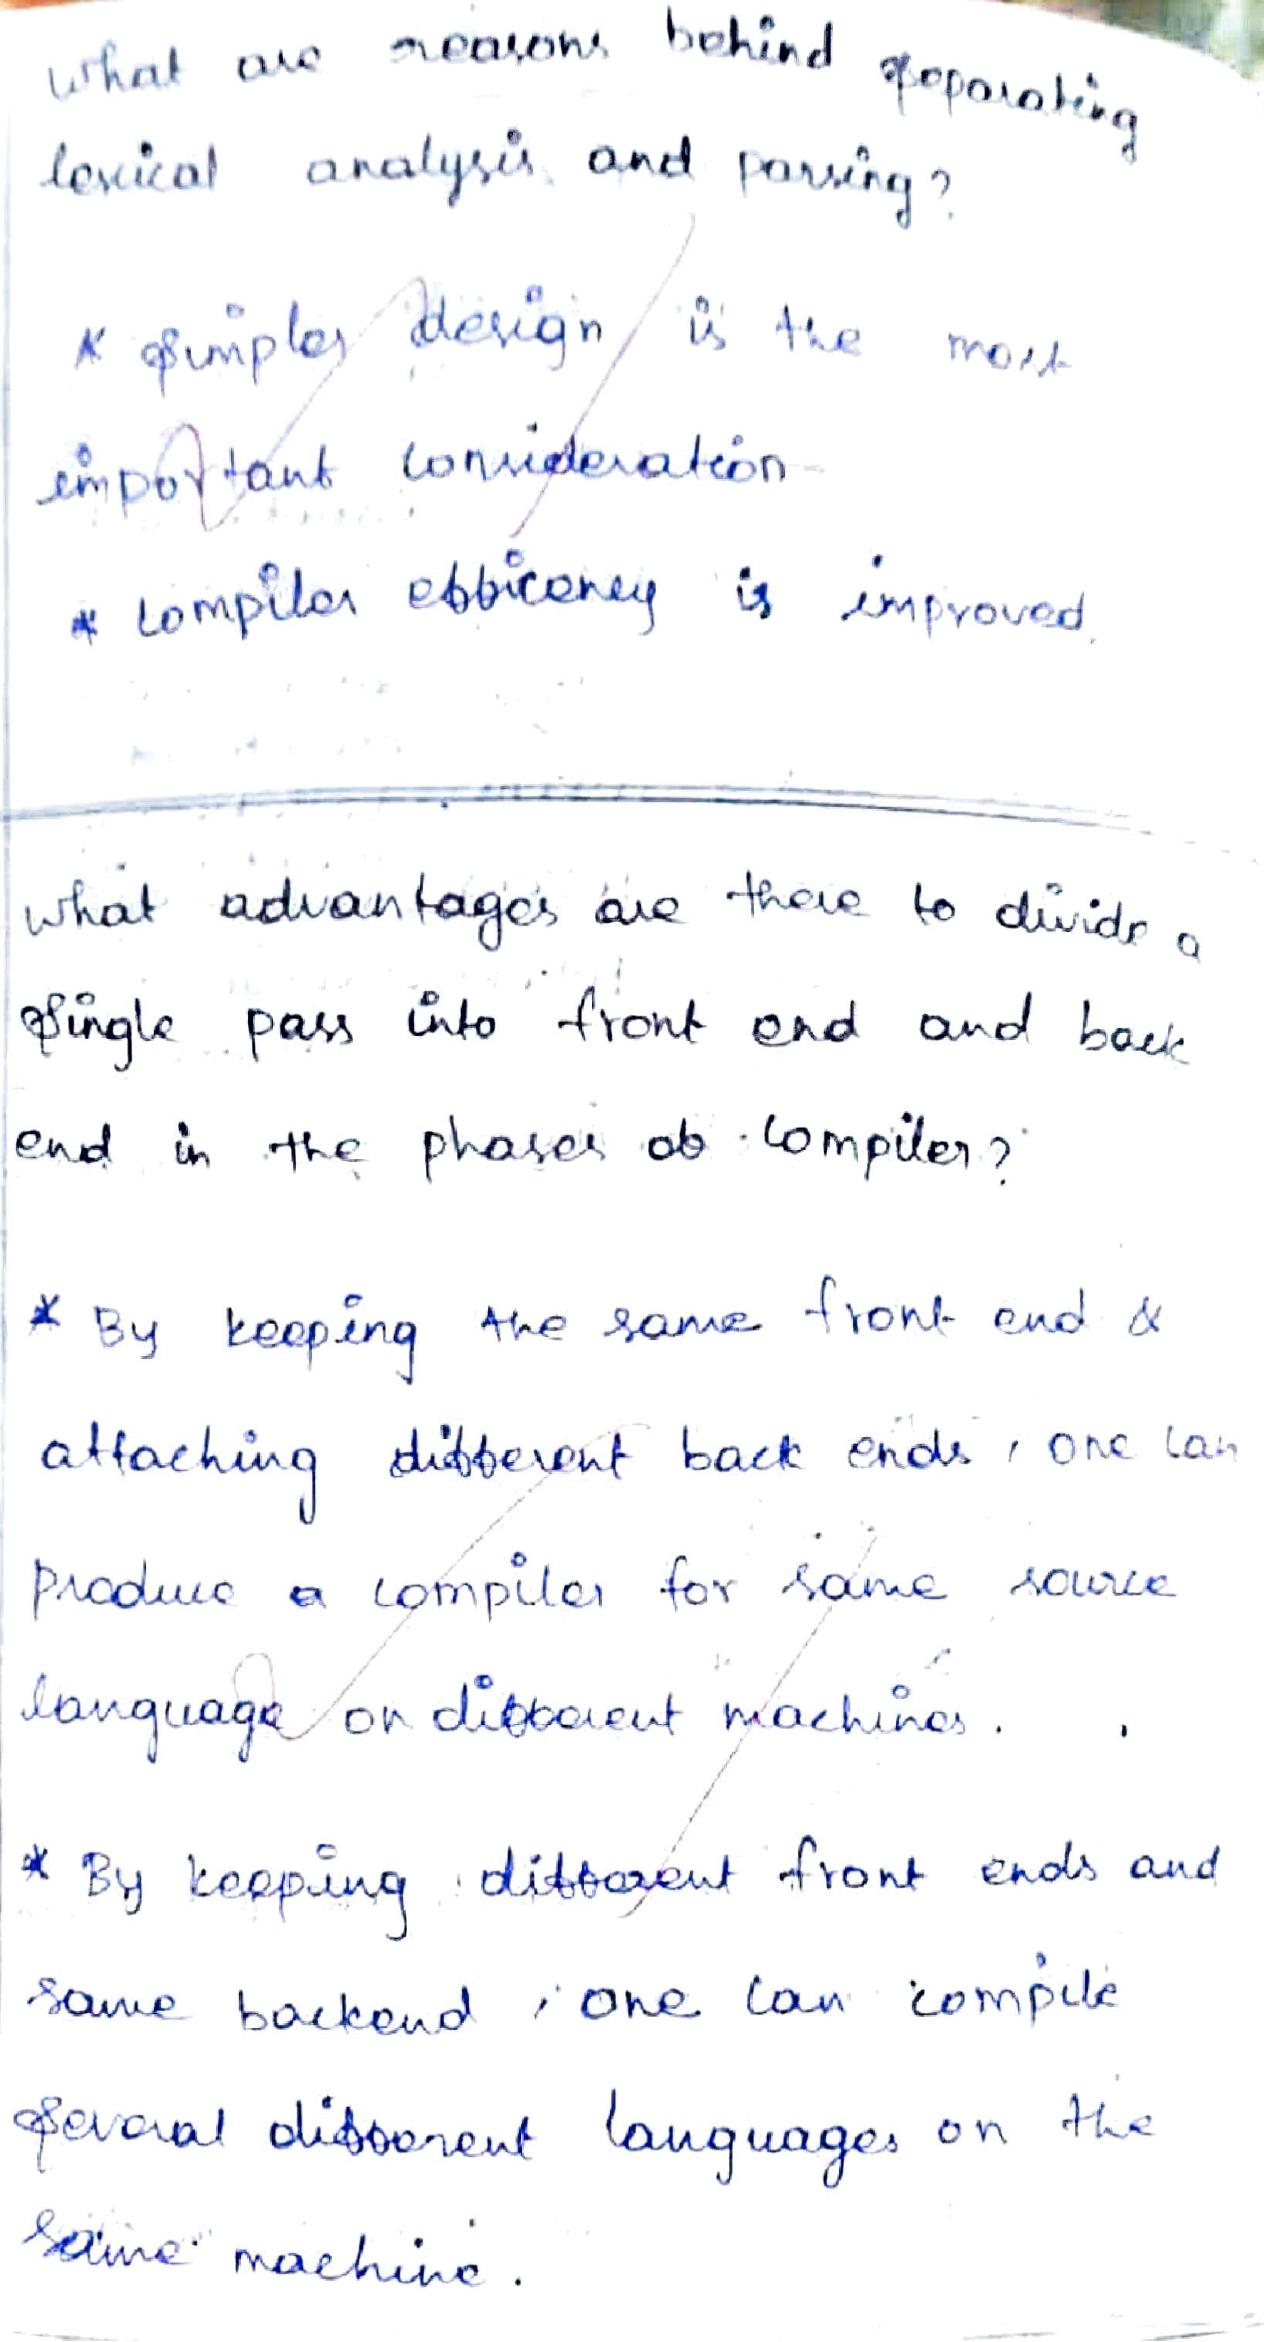 What are reasons behind separating
lexical analysis and parsing?
* Simpler design is the most
important consideration
* Compiler efficency is improved.
What advantages are there to divide a
Single pass into front end and back
end in the phases of compiler?
* By keeping the same front end &
attaching different back ends, one can
produce a compiler for same source
language on different machines.
* By keeping different front ends and
same backend, one can compile
several different languages on the
same machine.